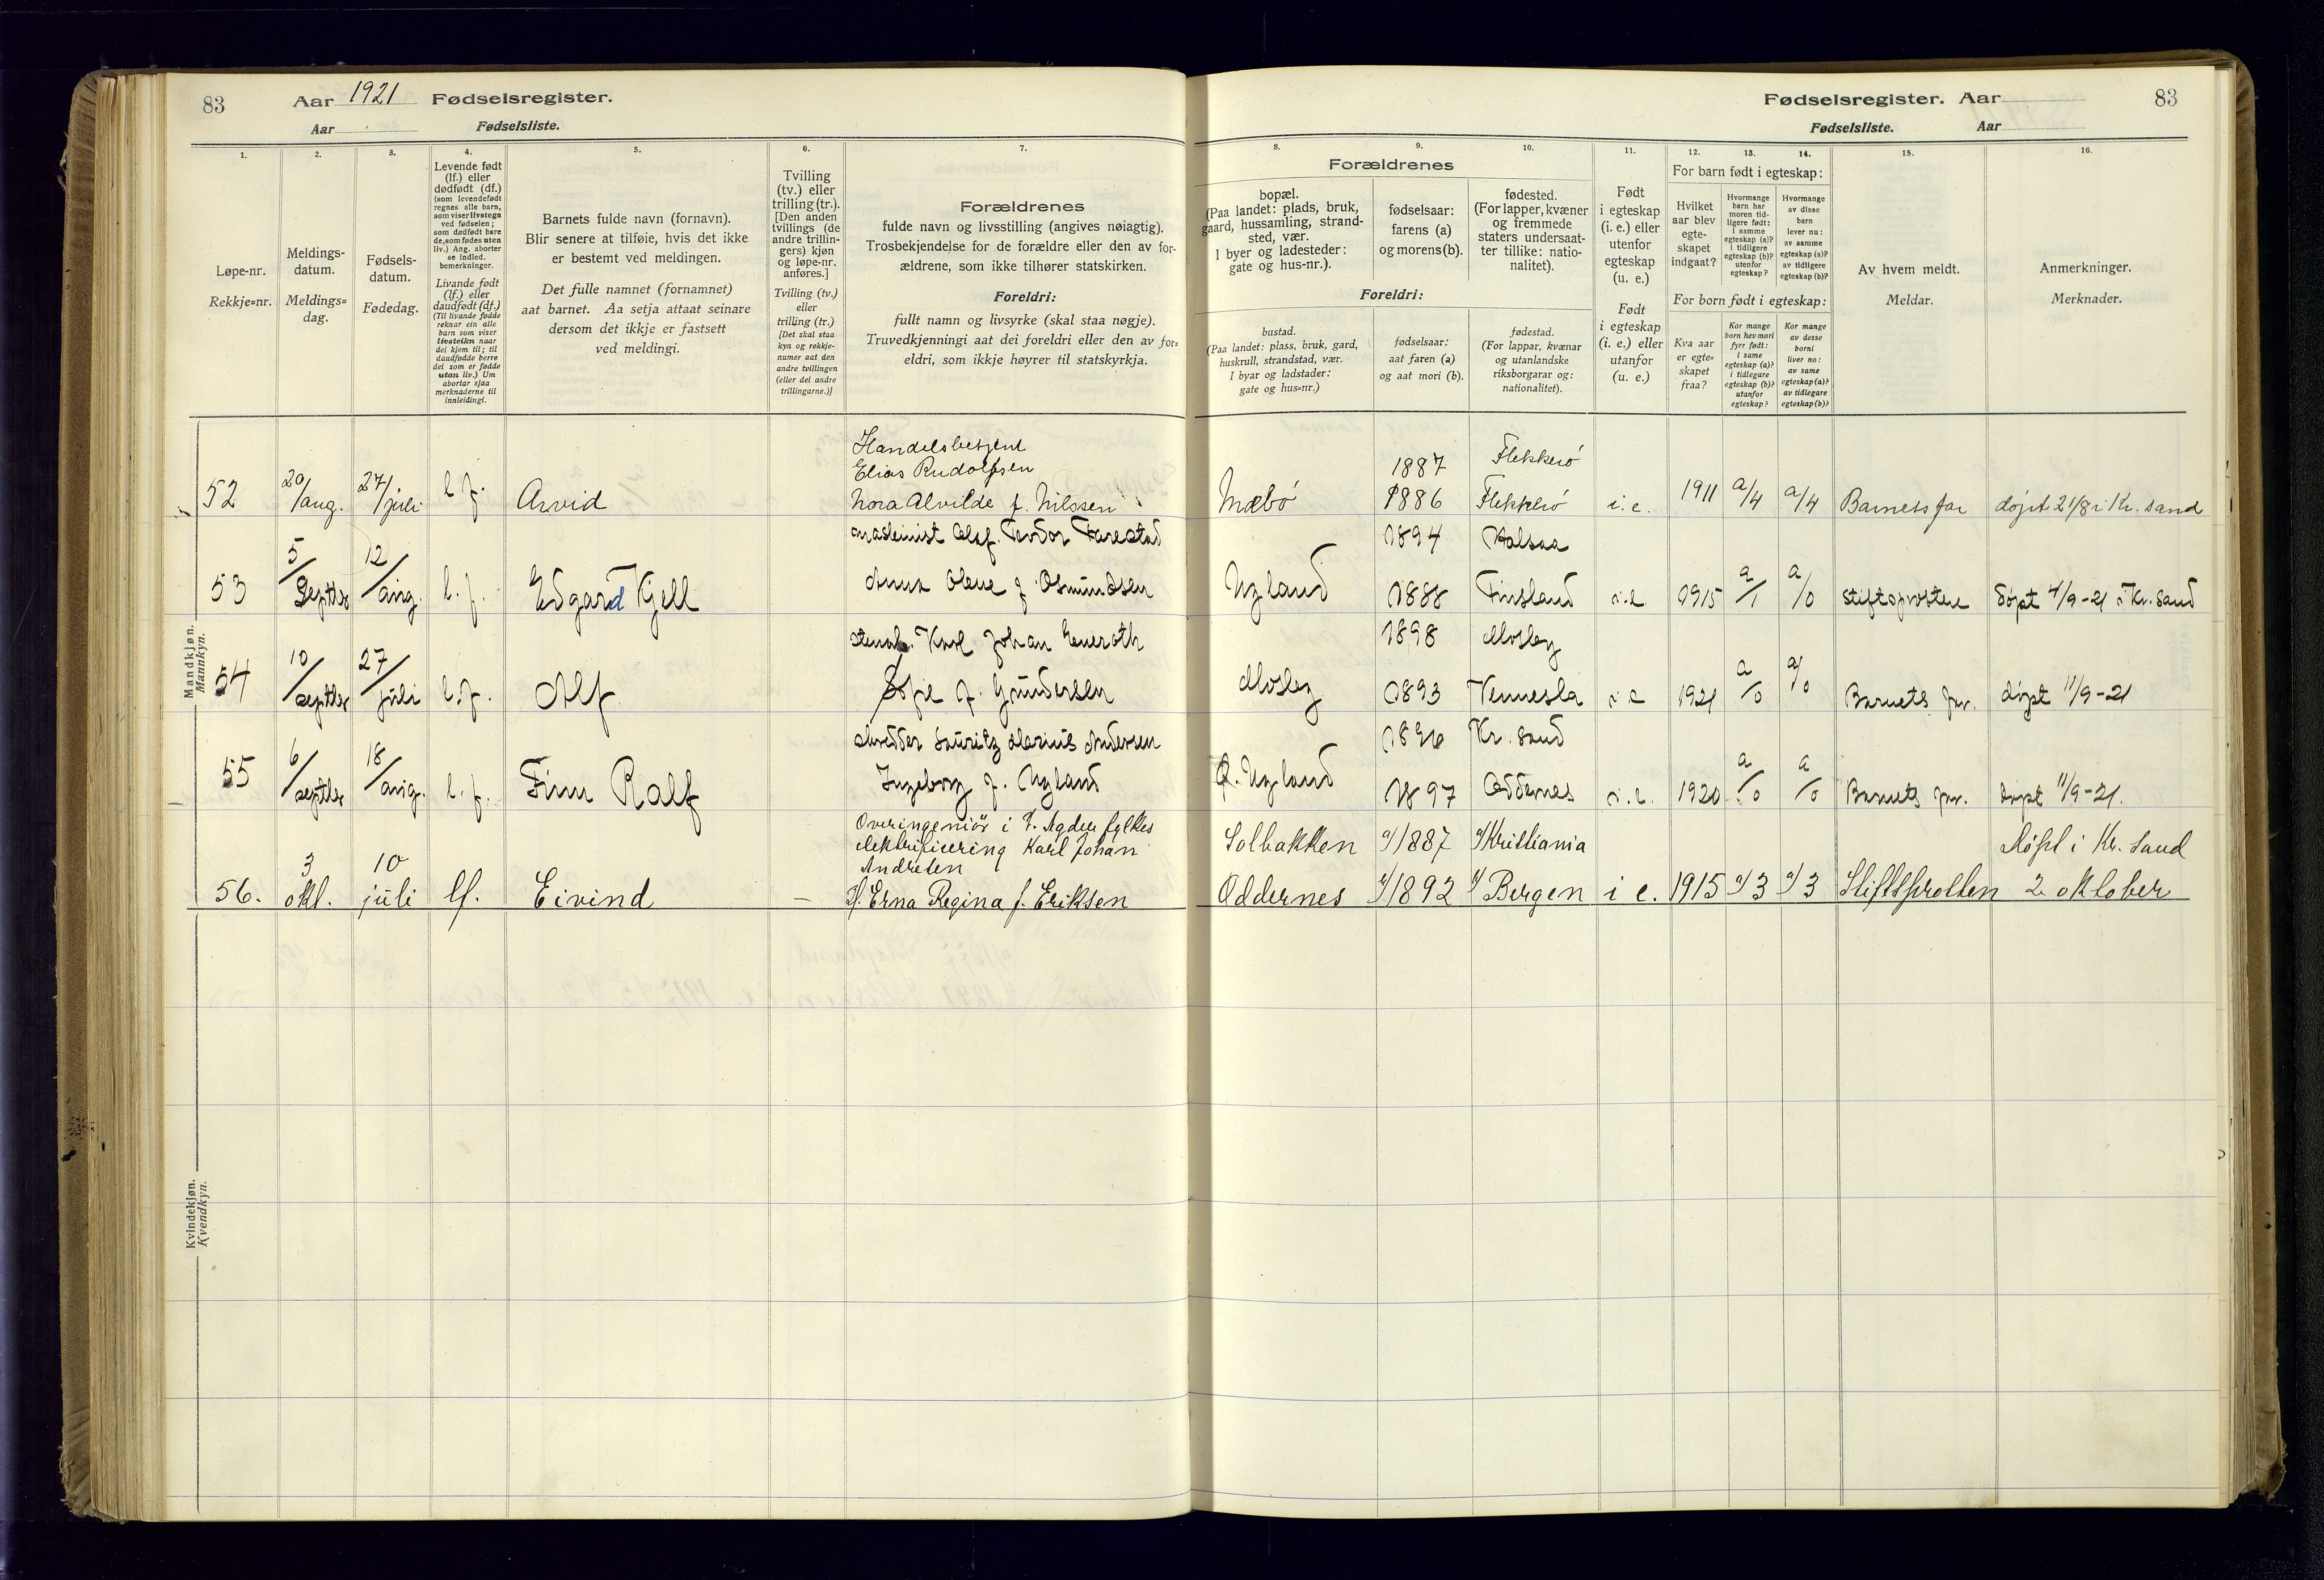 83
Aar 1921 Fødselsregister.
Aar Fødselsliste.
1.
2.
3.
4.
5.
6.
7.
Løpe-nr.
Rekkje=nr.
Meldings-
datum.
Meldings=
dag.
Fødsels-
datum.
Fødedag.
Levende født
(lf.) eller
dødfødt (df.)
(som levendefødt
regnes alle barn,
som viser livstegn
ved fødselen;
som dødfødt bare
de, som fødes uten
liv.) Ang. aborter
se indled.
bemerkninger.
Livande født
(lf.) eller
daudfødt (df.)
(Til livande fødde
reknar ein alle
barn som viser
livsteikn naar
dei kjem til; til
daudfødde berre
dei som er fødde
utan liv.) Um
abortar sjaa
merknaderne til
innleidingi.
Barnets fulde navn (fornavn).
Blir senere at tilføie, hvis det ikke
er bestemt ved meldingen.
Det fulle namnet (fornamnet)
aat barnet. Aa setja attaat seinare
dersom det ikkje er fastsett
ved meldingi.
Tvilling
(tv.) eller
trilling (tr.).
[Den anden
tvillings (de
andre trillin-
gers) kjøn
og løpe-nr.
anføres.]
Tvilling (tv.)
eller
trilling (tr.)
[Det skal staa
kyn og rekkje-
numer aat den
andre tvillingen
(eller dei andre
trillingarne.)]
Forældrenes
fulde navn og livsstilling (angives nøiagtig).
Trosbekjendelse for de forældre eller den av for-
ældrene, som ikke tilhører statskirken.
Foreldri:
fullt namn og livsyrke (skal staa nøgje).
Truvedkjenningi aat dei foreldri eller den av for=
eldri, som ikkje høyrer til statskyrkja.
Mandkjøn.
Mannkyn.
52
20/aug.
27/juli
l.f.
Arvid
Handelsbetjent
Elias Rudolfsen
Nora Alvilde f. Nilssen
53
5/septbr
12/aug.
l.f.
Edgard Kjell
maskinist Olaf Teodor Farestad
Anna Olene f. Osmundsen
54
10/septbr
27/juli
l.f.
Alf
Karl Johan
Sofie f. Gundersen
55
6/septbr
18/aug.
l.f.
Finn Ralf
Lauritz Marius Andersen
Ingeborg f. Ugland
56.
3 okt.
10 juli
lf.
Eivind
—
Overingeniør i V. Agder fylkes
elektrificering Karl Johan
Andresen
H. Erna Regina f. Eriksen
Kvindekjøn.
Kvendkyn.
Fødselsregister. Aar 83
Fødselsliste. Aar
8.
9.
10.
11.
12.
13.
14.
15.
16.
Forældrenes
bopæl.
(Paa landet: plads, bruk,
gaard, hussamling, strand-
sted, vær.
I byer og ladesteder:
gate og hus-nr.).
fødselsaar:
farens (a)
og morens (b).
fødested.
(For lapper, kvæner
og fremmede
staters undersaat-
ter tillike: natio-
nalitet).
Foreldri:
bustad.
(Paa landet: plass, bruk, gard,
huskrull, strandstad, vær.
I byar og ladstader:
gate og hus=nr.)
fødselsaar:
aat faren (a)
og aat mori (b).
fødestad.
(For lappar, kvænar
og utanlandske
riksborgarar og:
nationalitet).
Født
i egteskap
(i. e.) eller
utenfor
egteskap
(u. e.)
Født
i egteskap
(i. e.) eller
utanfor
(u. e.)
For barn født i egteskap:
Hvilket
aar blev
egte-
skapet
indgaat?
Hvormange
barn har
moren tid-
ligere født:
i samme
egteskap (a)?
i tidligere
egteskap (b)?
utenfor
egteskap?
Hvormange
av disse
barn
lever nu:
av samme
egteskap (a)?
av tidligere
egteskap (b)?
For born født i egteskap:
Kva aar
er egte=
skapet
fraa?
Kor mange
born hev mori
fyrr født:
i same
egteskap (a)?
i tidlegare
egteskap (b)?
utanfor
egteskap?
Kor mange
av desse
borni
liver no:
av same
egteskap (a)?
av tidlegare
egteskap (b)?
Av hvem meldt.
Meldar.
Anmerkninger.
Merknader.
Mæbø
1887
1886
Flekkerø
Flekkerø
i. e.
1911
a/4
a/4
Barnets far
døpt 21/8 i Kr. sand
Ugland
1894
1888
Halsaa
Finsland
i. e.
1915
a/1
a/0
stiftsprosten
døpt 4/9-21 i Kr. sand
Mosby
1898
1893
Mosby
Vennesla
i. e
1921
a/0
a/0
Barnets far.
døpt 11/9-21
Ø. Ugland
1896
1897
Kr. sand
Oddernes
i. e.
1920
a/0
a/0
Barnets far.
døpt 11/9-21.
Solbakken
Oddernes
a/1887
b/1892
a/Kristiania
b/Bergen
i e.
1915
a/3
a/3
Stiftsprosten
Døpt i Kr. sand
2 oktober